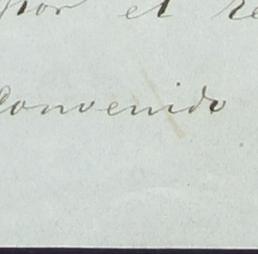 por el
Convenido